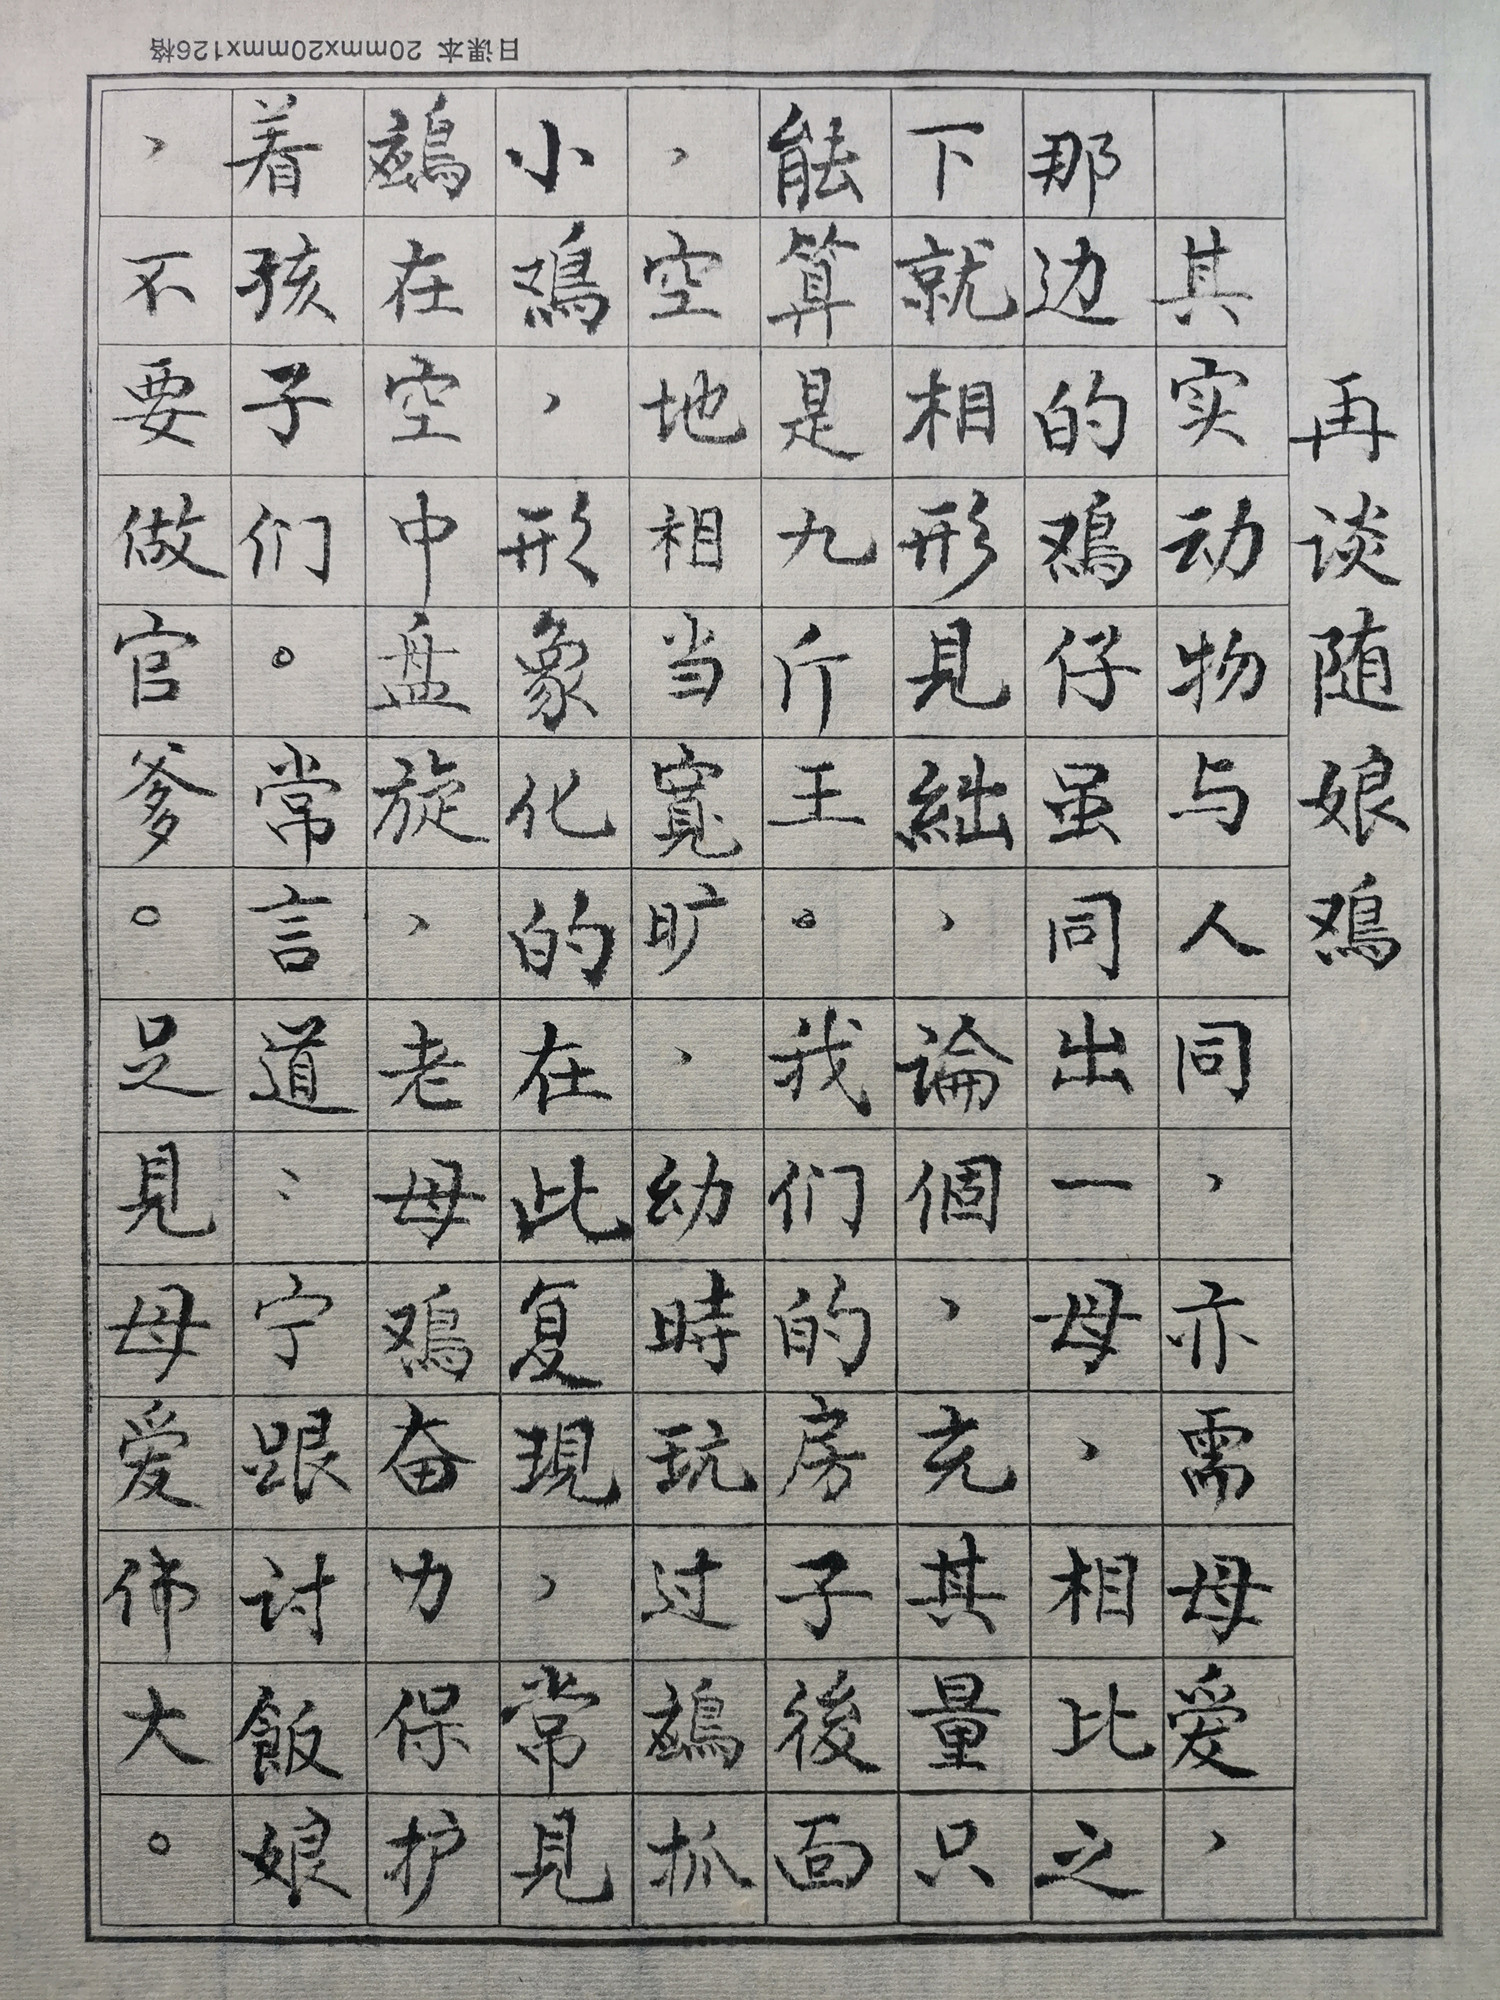 日课本 20mmx20mmx126格
再谈随娘鸡
其实动物与人同，亦需母爱，
那边的鸡仔虽同出一母，相比之
下就相形見絀，論個，充其量只
能算是九斤王。我们的房子後面
，空地相当寬旷，幼時玩过鷂抓
小鸡，形象化的在此复現，常見
鷂在空中盘旋，老母鸡奋力保护
着孩子们。常言道：宁跟讨飯娘
，不要做官爹。足見母爱伟大。